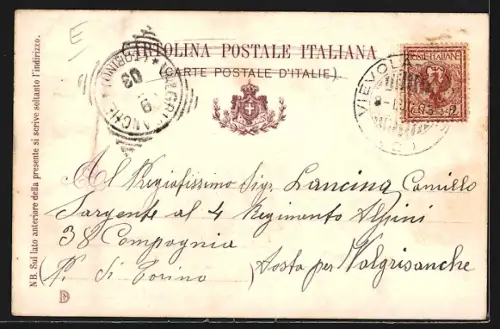 E
CARTOLINA POSTALE ITALIANA
(CARTE POSTALE D'ITALIE)
VALGRISANCHE
(TORINO)
9
03
VIEVOLA
POSTE ITALIANE
2
NB. Sul lato anteriore della presente si scrive soltanto l'indirizzo.
Al Pregiatissimo Sig. Lancina Camillo
Sargente al 4 Regimento Alpini
38 Compagnia
(P. di Torino) Aosta per Valgrisanche